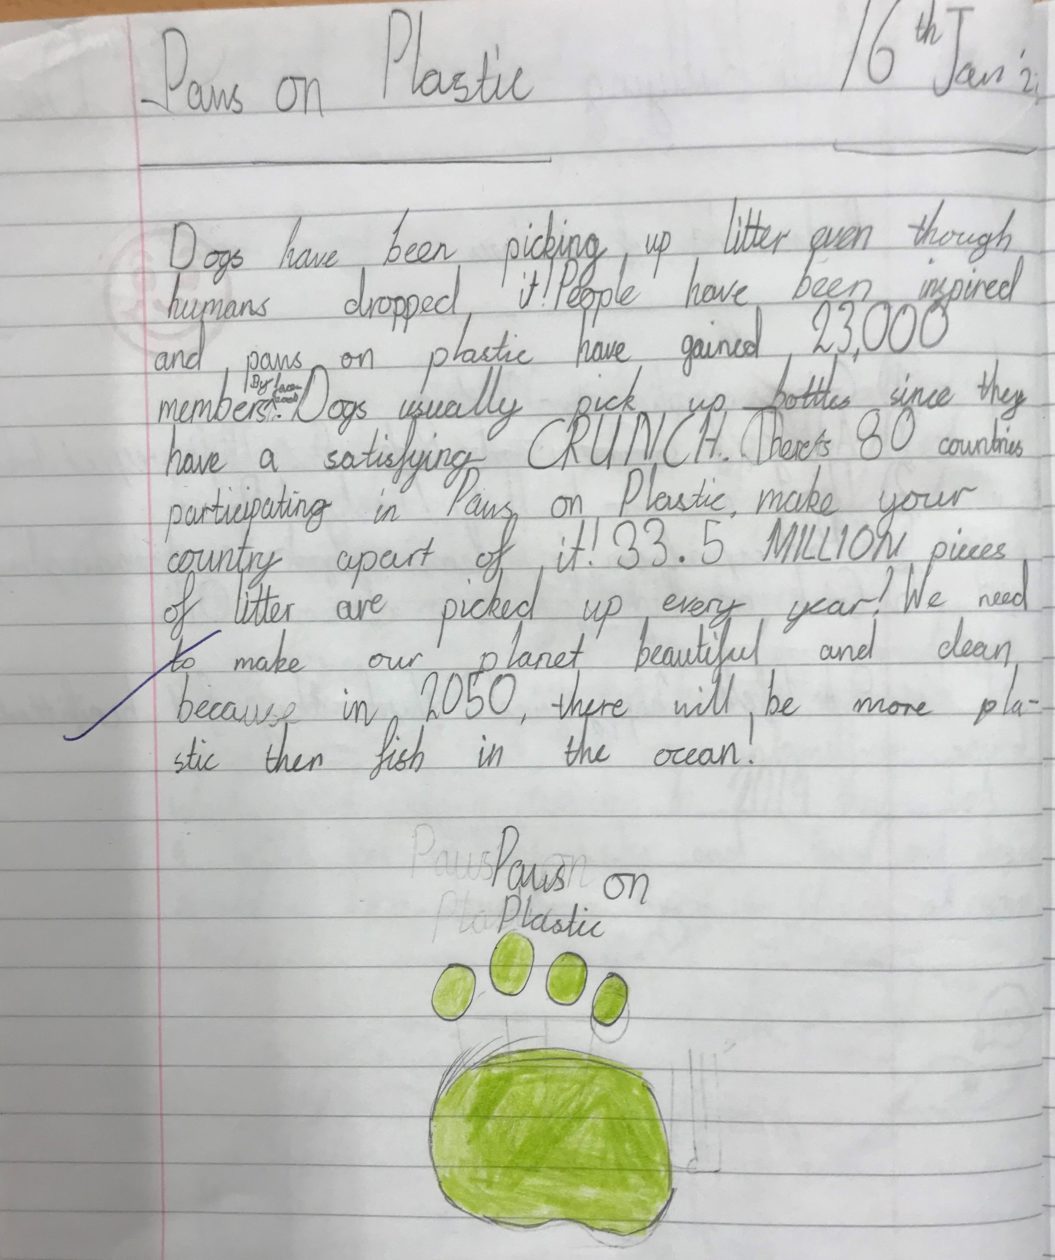 Paws on Plastic
16th Jan
Dogs have been picking up litter even though
humans dropped it! People have been inspired
and paws on plastic have gained 23,000
members. Dogs usually pick up bottles since they
have a satisfying CRUNCH. There's 80 countries
participating in Paws on Plastic, make your
country apart of it! 33.5 MILLION pieces
of litter are picked up every year! We need
to make our planet beautiful and clean
because in 2050, there will be more pla-
stic then fish in the ocean!
Paws on
Plastic